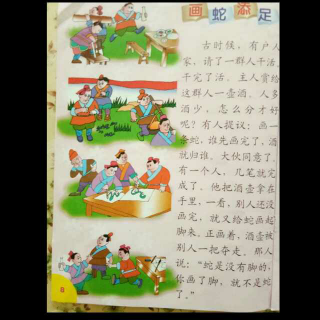 画蛇添足
古时候，有户人
家，请了一群人干活。
干完了活，主人赏给
这群人一壶酒。人多
酒少，怎么分才好
呢？有人提议：画一
条蛇，谁先画完了，酒
就归谁。大伙同意了。
有一个人，几笔就完
成了。他把酒壶拿在
手里，一看，别人还没
画完，就又给蛇画起
脚来。正画着，酒壶被
别人一把夺走。那人
说：“蛇是没有脚的，
你画了脚，就不是蛇
了。”
8